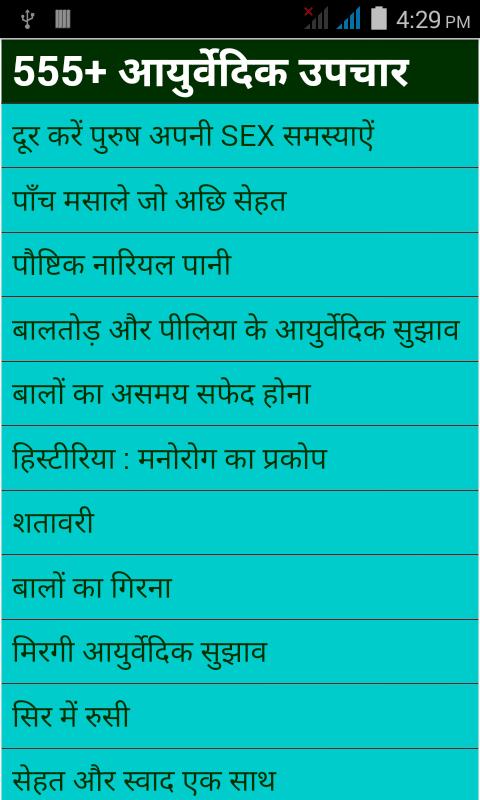 4:29 PM
555+ आयुर्वेदिक उपचार
दूर करें पुरुष अपनी SEX समस्याऐं
पाँच मसाले जो अछि सेहत
पौष्टिक नारियल पानी
बालतोड़ और पीलिया के आयुर्वेदिक सुझाव
बालों का असमय सफेद होना
हिस्टीरिया : मनोरोग का प्रकोप
शतावरी
बालों का गिरना
मिरगी आयुर्वेदिक सुझाव
सिर में रुसी
सेहत और स्वाद एक साथ